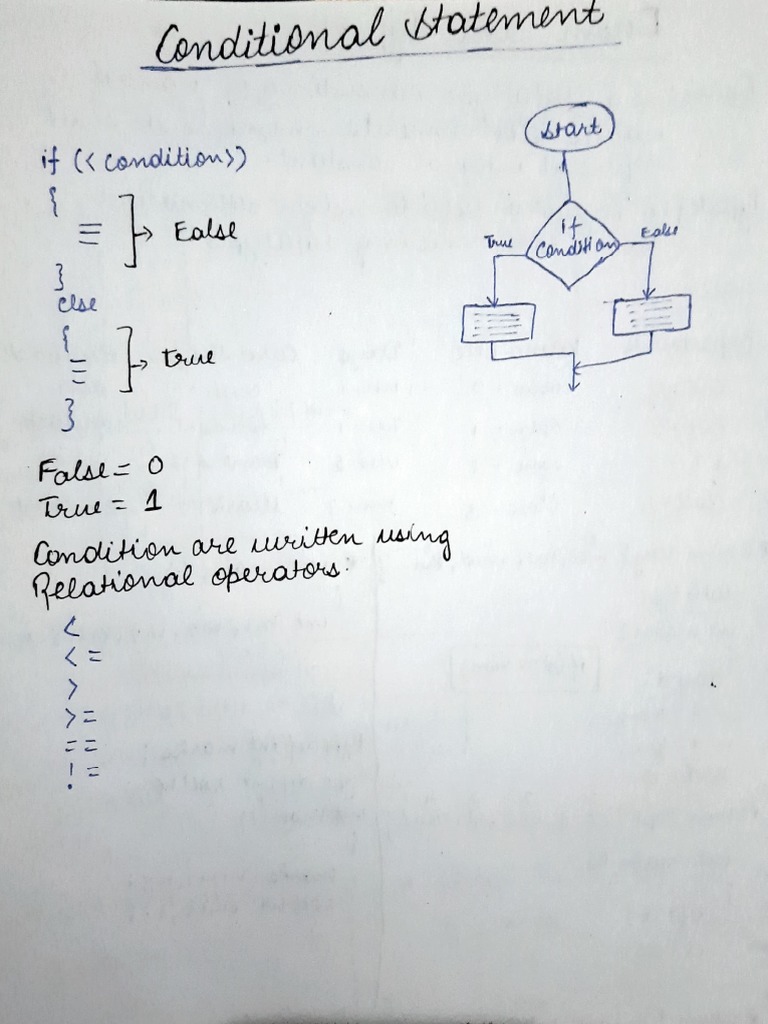 Conditional Statement
if (< condition>)
{
Ealse
}
else
{
True
}
Start
if
Condition
True
Ealse
False = 0
True = 1
Condition are written using
Relational operators:
<
< =
>
> =
= =
! =